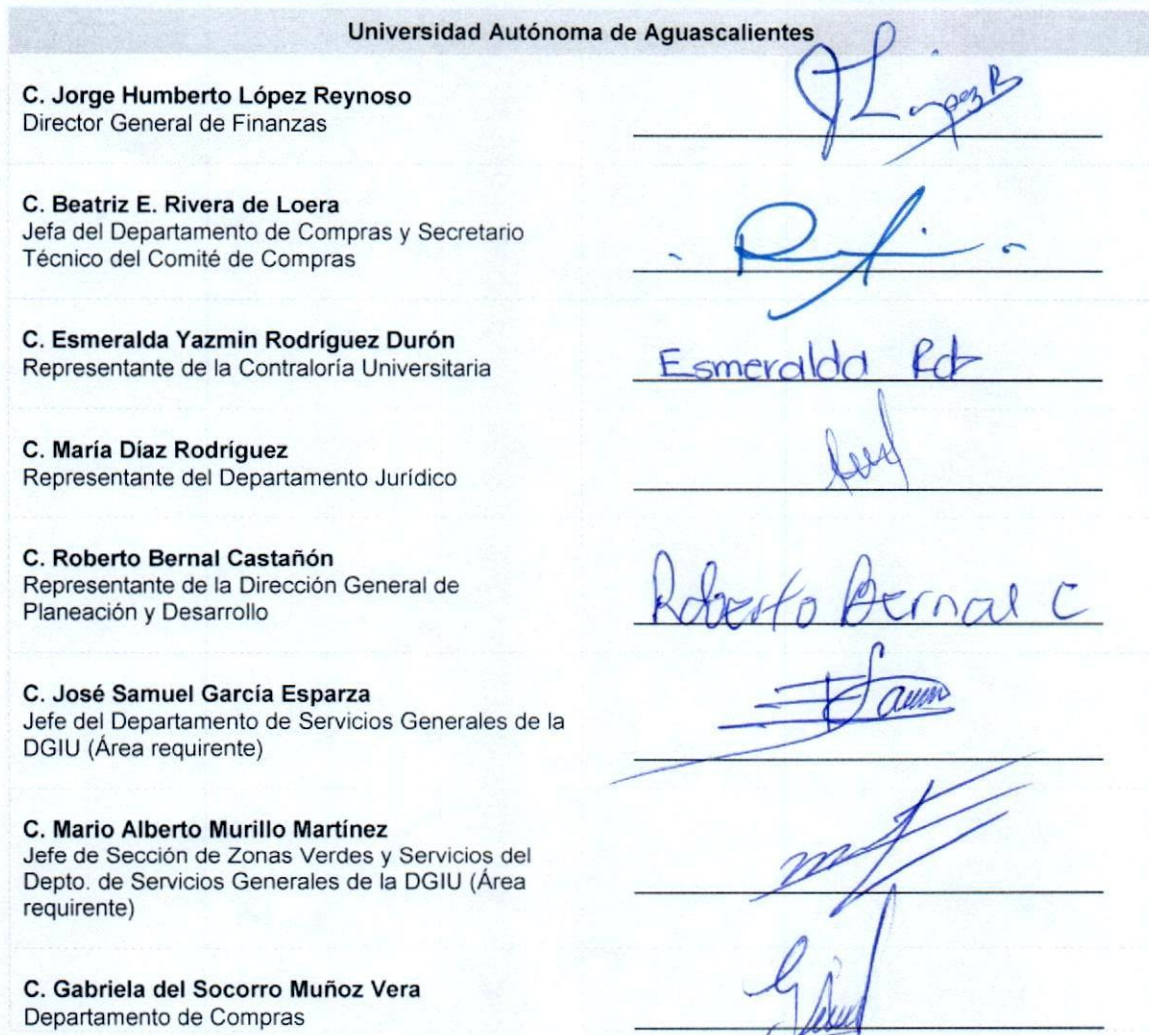 Universidad Autónoma de Aguascalientes
C. Jorge Humberto López Reynoso
Director General de Finanzas
JLópez R
C. Beatriz E. Rivera de Loera
Jefa del Departamento de Compras y Secretario
Técnico del Comité de Compras
C. Esmeralda Yazmin Rodríguez Durón
Representante de la Contraloría Universitaria
Esmeralda Rdz
C. María Díaz Rodríguez
Representante del Departamento Jurídico
C. Roberto Bernal Castañón
Representante de la Dirección General de
Planeación y Desarrollo
Roberto Bernal C
C. José Samuel García Esparza
Jefe del Departamento de Servicios Generales de la
DGIU (Área requirente)
C. Mario Alberto Murillo Martínez
Jefe de Sección de Zonas Verdes y Servicios del
Depto. de Servicios Generales de la DGIU (Área
requirente)
C. Gabriela del Socorro Muñoz Vera
Departamento de Compras